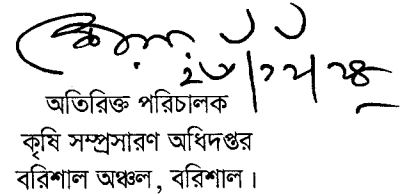 অতিরিক্ত পরিচালক
কৃষি সম্প্রসারণ অধিদপ্তর
বরিশাল অঞ্চল, বরিশাল।